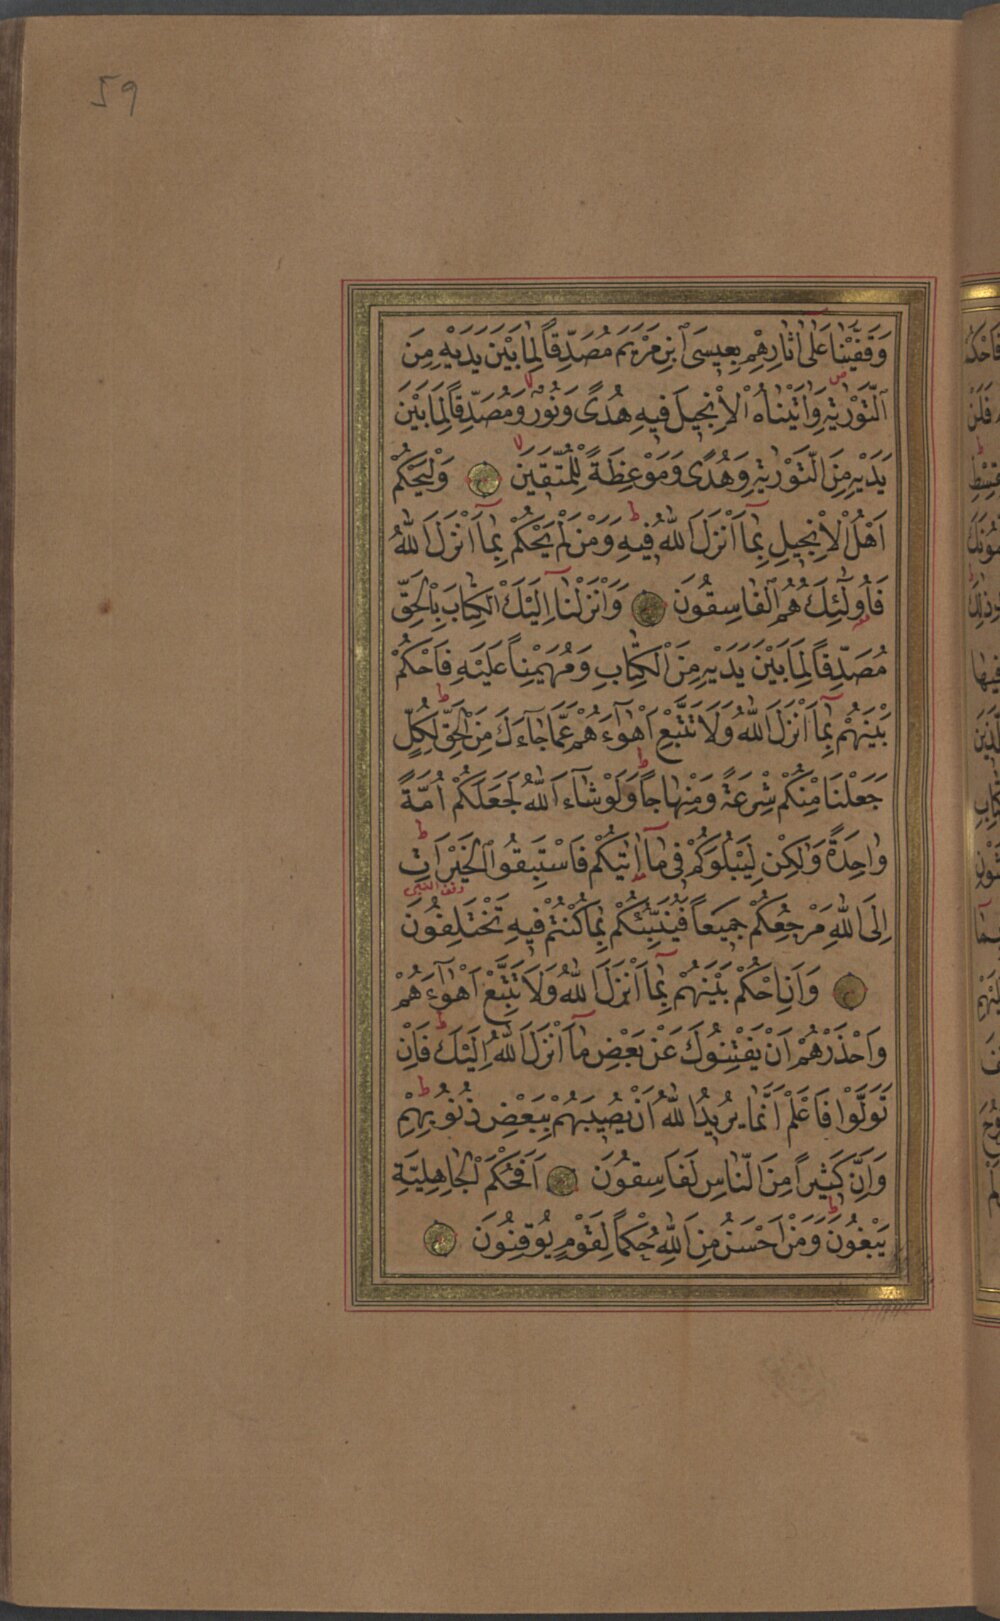 59
وَقَفَّيْنَا عَلٰٓى اٰثَارِهِمْ بِعِيسَى ابْنِ مَرْيَمَ مُصَدِّقاً لِمَا بَيْنَ يَدَيْهِ مِنَ
التَّوْرٰيةِ وَاٰتَيْنَاهُ الْاِنْجِيلَ فِيهِ هُدًى وَنُورٌ وَمُصَدِّقاً لِمَا بَيْنَ
يَدَيْهِ مِنَ التَّوْرٰيةِ وَهُدًى وَمَوْعِظَةً لِلْمُتَّقِينَ وَلْيَحْكُمْ
اَهْلُ الْاِنْجِيلِ بِمَٓا اَنْزَلَ اللّٰهُ فِيهِ وَمَنْ لَمْ يَحْكُمْ بِمَٓا اَنْزَلَ اللّٰهُ
فَاُولٰٓئِكَ هُمُ الْفَاسِقُونَ وَاَنْزَلْنَٓا اِلَيْكَ الْكِتَابَ بِالْحَقِّ
مُصَدِّقاً لِمَا بَيْنَ يَدَيْهِ مِنَ الْكِتَابِ وَمُهَيْمِناً عَلَيْهِ فَاحْكُمْ
بَيْنَهُمْ بِمَٓا اَنْزَلَ اللّٰهُ وَلَا تَتَّبِعْ اَهْوَٓاءَهُمْ عَمَّا جَٓاءَكَ مِنَ الْحَقِّ لِكُلٍّ
جَعَلْنَا مِنْكُمْ شِرْعَةً وَمِنْهَاجاً وَلَوْ شَٓاءَ اللّٰهُ لَجَعَلَكُمْ اُمَّةً
وَاحِدَةً وَلٰكِنْ لِيَبْلُوَكُمْ فِى مَٓا اٰتٰيكُمْ فَاسْتَبِقُوا الْخَيْرَاتِ
اِلَى اللّٰهِ مَرْجِعُكُمْ جَمِيعاً فَيُنَبِّئُكُمْ بِمَا كُنْتُمْ فِيهِ تَخْتَلِفُونَ
وَاَنِ احْكُمْ بَيْنَهُمْ بِمَٓا اَنْزَلَ اللّٰهُ وَلَا تَتَّبِعْ اَهْوَٓاءَهُمْ
وَاحْذَرْهُمْ اَنْ يَفْتِنُوكَ عَنْ بَعْضِ مَٓا اَنْزَلَ اللّٰهُ اِلَيْكَ فَاِنْ
تَوَلَّوْا فَاعْلَمْ اَنَّمَا يُرِيدُ اللّٰهُ اَنْ يُصِيبَهُمْ بِبَعْضِ ذُنُوبِهِمْ
وَاِنَّ كَثِيراً مِنَ النَّاسِ لَفَاسِقُونَ اَفَحُكْمَ الْجَاهِلِيَّةِ
يَبْغُونَ وَمَنْ اَحْسَنُ مِنَ اللّٰهِ حُكْماً لِقَوْمٍ يُوقِنُونَ